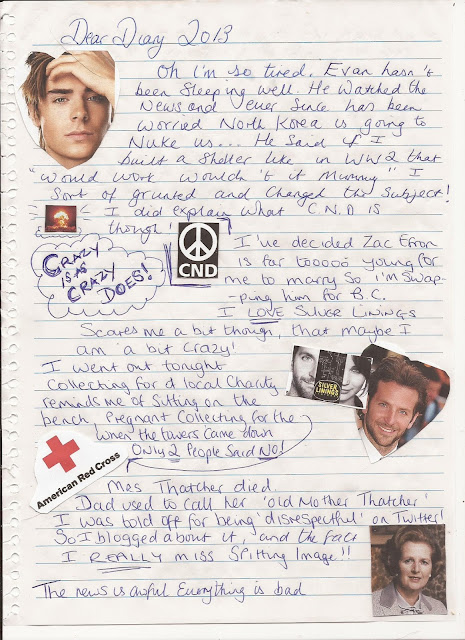 Dear Diary 2013
Oh I'm so tired. Evan hasn't
been sleeping well. He watched the
News and ever since has been
worried North Korea is going to
Nuke us... He said if I
built a shelter like in WW2 that
"would work wouldn't it Mummy" I
sort of grunted and changed the subject!
I did explain what C.N.D is
though!
CND
CRAZY
IS AS
CRAZY
DOES!
I've decided Zac Efron
is far tooooo young for
me to marry so I'm swap-
-ping him for B.C.
I LOVE Silver Linings
Scares me a bit though, that maybe I
am a bit crazy!
I went out tonight
collecting for a local charity
reminds me of sitting on the
bench pregnant collecting for the
when the towers came down
ONLY 2 People Said NO!
SILVER
LININGS
American Red Cross
Mrs Thatcher died.
Dad used to call her 'old Mother Thatcher'
I was told off for being 'disrespectful' on Twitter!
So I blogged about it, and the fact
I REALLY miss Spitting Image!!
The news is awful Everything is bad